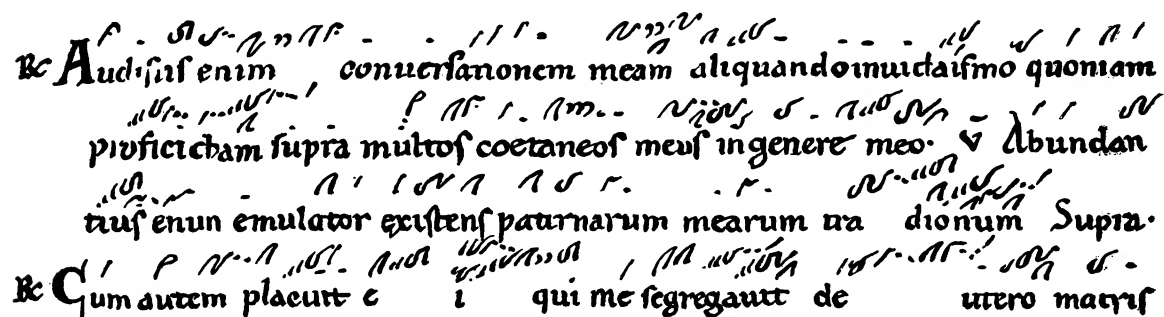 ℟ Audistis enim conuersationem meam aliquando in iudaismo quoniam
proficiebam supra multos coetaneos meos in genere meo. ℣ Abundan
tius enim emulator existens paternarum mearum tra ditionum Supra.
℟ Cum autem placuit e i qui me segregauit de utero matris